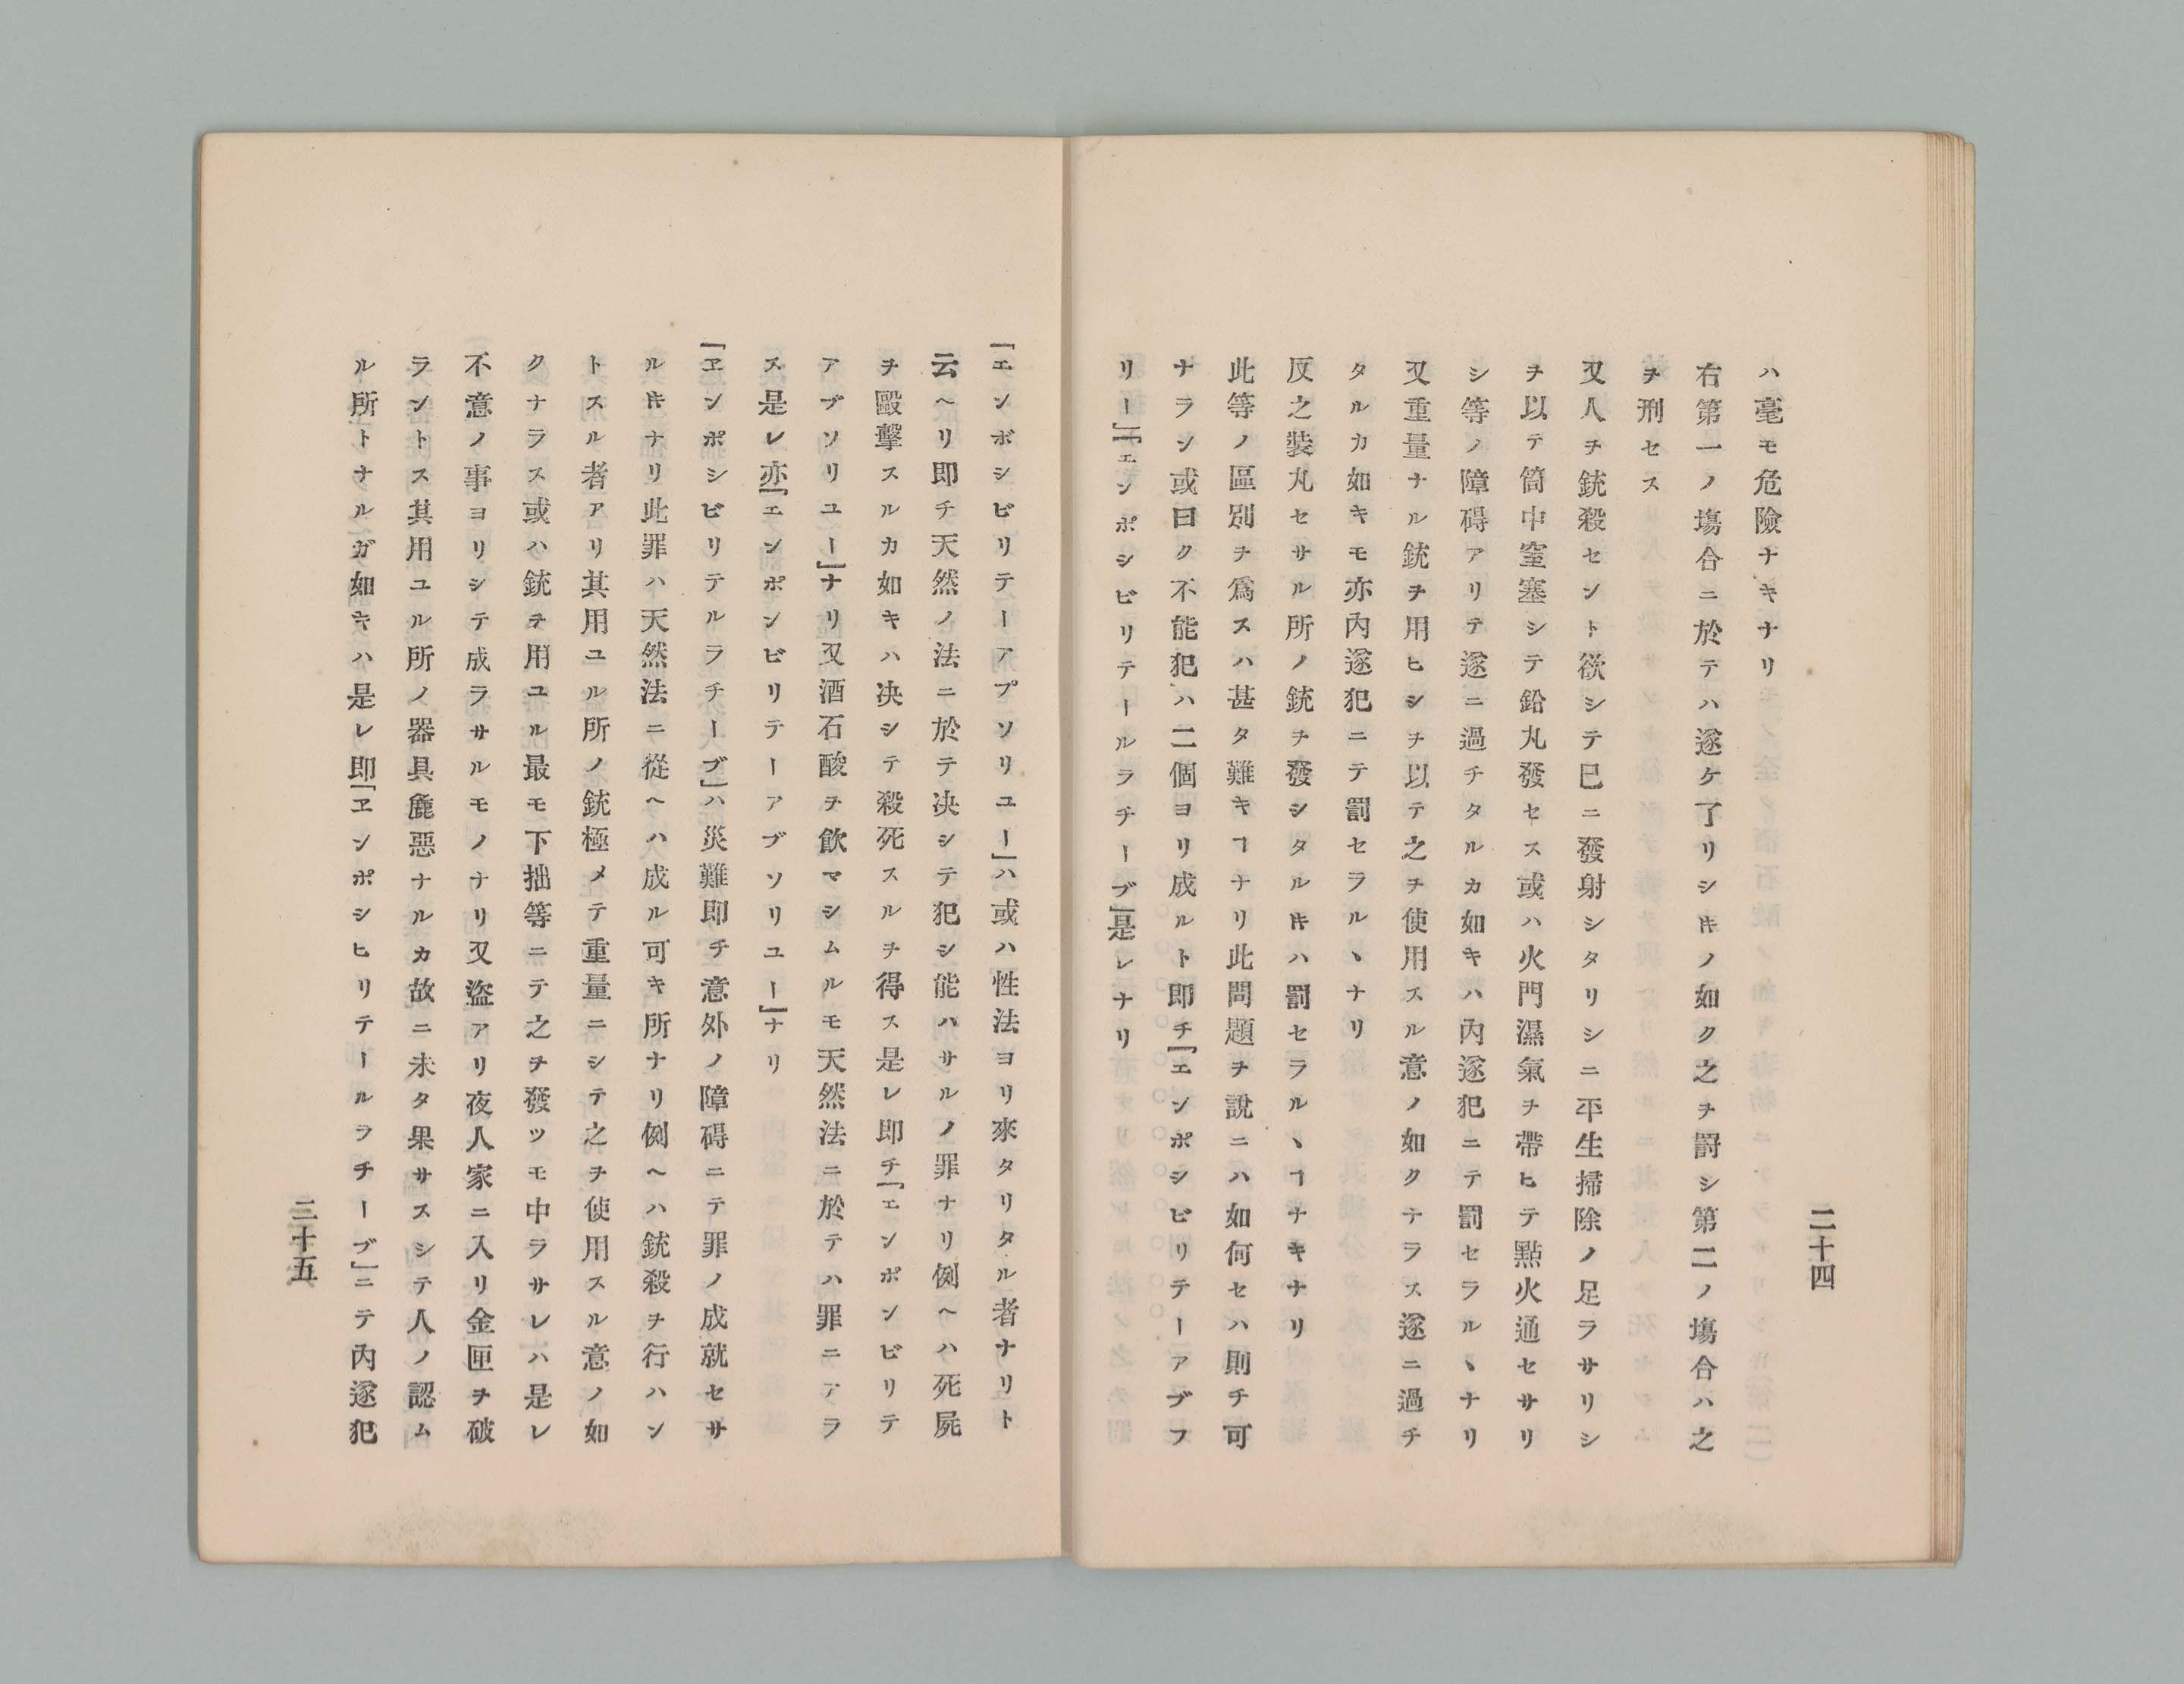 二十四
ハ毫モ危險ナキナリ
右第一ノ塲合ニ於テハ遂ケ了リシ𪜈ノ如ク之ヲ罸シ第二ノ塲合ハ之
ヲ刑セス
又人ヲ銃殺セント欲シテ已ニ發射シタリシニ平生掃除ノ足ラサリシ
ヲ以テ筒中窒塞シテ鉛丸發セス或ハ火門濕氣ヲ帶ヒテ點火通セサリ
シ等ノ障碍アリテ遂ニ過チタルカ如キハ内遂犯ニテ罰セラルヽナリ
又重量ナル銃ヲ用ヒシヲ以テ之ヲ使用スル意ノ如クナラス遂ニ過チ
タルカ如キモ亦内遂犯ニテ罰セラルヽナリ
反之裝丸セサル所ノ銃ヲ發シタル𪜈ハ罰セラルヽヿナキナリ
此等ノ區別ヲ爲スハ甚タ難キヿナリ此問題ヲ說ニハ如何セハ則チ可
ナラン或曰ク不能犯ハ二個ヨリ成ルト即チ「エンポシビリテーアブフ
リー」「エンポシビリテールラチーブ」是レナリ
「エンボシビリテーアプソリユー」ハ或ハ性法ヨリ來タリタル者ナリト
云ヘリ即チ天然ノ法ニ於テ决シテ犯シ能ハサルノ罪ナリ例ヘハ死屍
ヲ毆擊スルカ如キハ决シテ殺死スルヲ得ス是レ即チ「エンポンビリテ
アブソリユー」ナリ又酒石酸ヲ飮マシムルモ天然法ニ於テハ罪ニアラ
ス是レ亦「エンポンビリテーアブソリユー」ナリ
「ヱンポシビリテルラチーブ」ハ災難即チ意外ノ障碍ニテ罪ノ成就セサ
ル𪜈ナリ此罪ハ天然法ニ從ヘハ成ル可キ所ナリ例ヘハ銃殺ヲ行ハン
トスル者アリ其用ユル所ノ銃極メテ重量ニシテ之ヲ使用スル意ノ如
クナラス或ハ銃ヲ用ユル最モ下拙等ニテ之ヲ發ツモ中ラサレハ是レ
不意ノ事ヨリシテ成ラサルモノナリ又盜アリ夜人家ニ入リ金匣ヲ破
ラントス其用ユル所ノ器具麁惡ナルカ故ニ未タ果サスシテ人ノ認ム
ル所トナルガ如キハ是レ即「ヱンポシヒリテールラチーブ」ニテ内遂犯
二十五